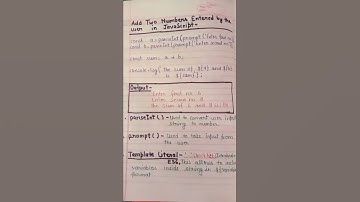 Add Two Numbers Entered by the
user in JavaScript -
const a = parseInt(prompt("Enter first no
const b = parseInt(prompt("Enter second no"
const sum = a + b;
console.log(`The sum of ${a} and ${b}
is ${sum}`);
Output -
Enter first no. 6
Enter second no. 8
The sum of 6 and 8 is 14.
parseInt() - Used to convert user input
string to number.
prompt() - Used to take input from
the user.
Template Literal -
ES6, this allows to
variables inside strings in
format